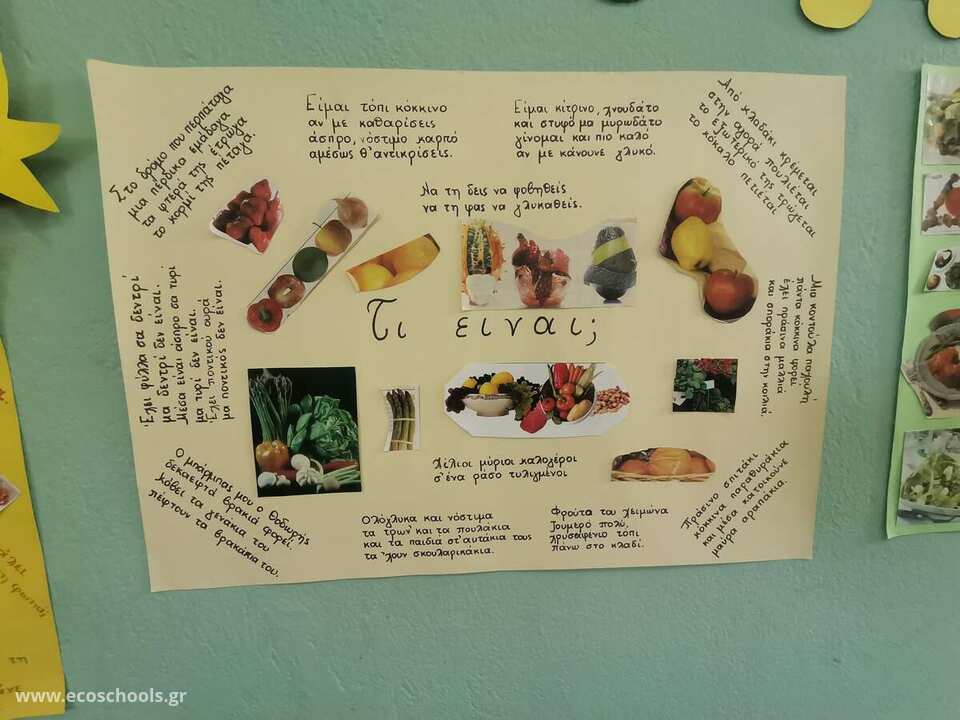 Στο δρόμο που περπάταγα
μια πέρδικα εμάδαγα
τα φτερά της έτρωγα
το κορμί της πέταγα.
Είμαι τόπι κόκκινο
αν με καθαρίσεις
άσπρο, νόστιμο καρπό
αμέσως θ'αντικρίσεις.
Είμαι κίτρινο, χνουδάτο
και στυφό μα μυρωδάτο
γίνομαι και πιο καλό
αν με κάνουνε γλυκό.
Από κλαδάκι κρέμεται
στην αγορά πουλιέται
το εξωτερικό της τρώγεται
το κόκαλό πετιέται
Να τη δεις να φοβηθείς
να τη φας να γλυκαθείς.
Έχει φύλλα σα δεντρί
μα δεντρί δεν είναι.
Μέσα είναι άσπρο σα τυρί
μα τυρί δεν είναι.
Έχει ποντικού ουρά
μα ποντικός δεν είναι.
Τι είναι;
Μια κοντούλα παχουλή
πάντα κόκκινα φορεί
έχει πράσινα μαλλιά
και σποράκια στην κοιλιά.
Ο μπάρμπας μου ο Θοδωρής
δεκαεφτά βρακιά φορεί
κόβει τα γενάκια του
πέφτουν τα
βρακάκια του.
Χίλιοι μύριοι καλογέροι
σ'ένα ράσο τυλιγμένοι
Ολόγλυκα και νόστιμα
τα τρων' και τα πουλάκια
και τα παιδιά στ'αυτάκια τους
τα 'χουν σκουλαρίκάκια.
Φρούτα του χειμώνα
ζουμερό πολύ,
χρυσαφένιο τόπι
πάνω στο κλαδί.
Πράσινο σπιτάκι
κόκκινα παραθυράκια
και μέσα κατοικούνε
μαύρα αραπάκια.
www.ecoschools.gr